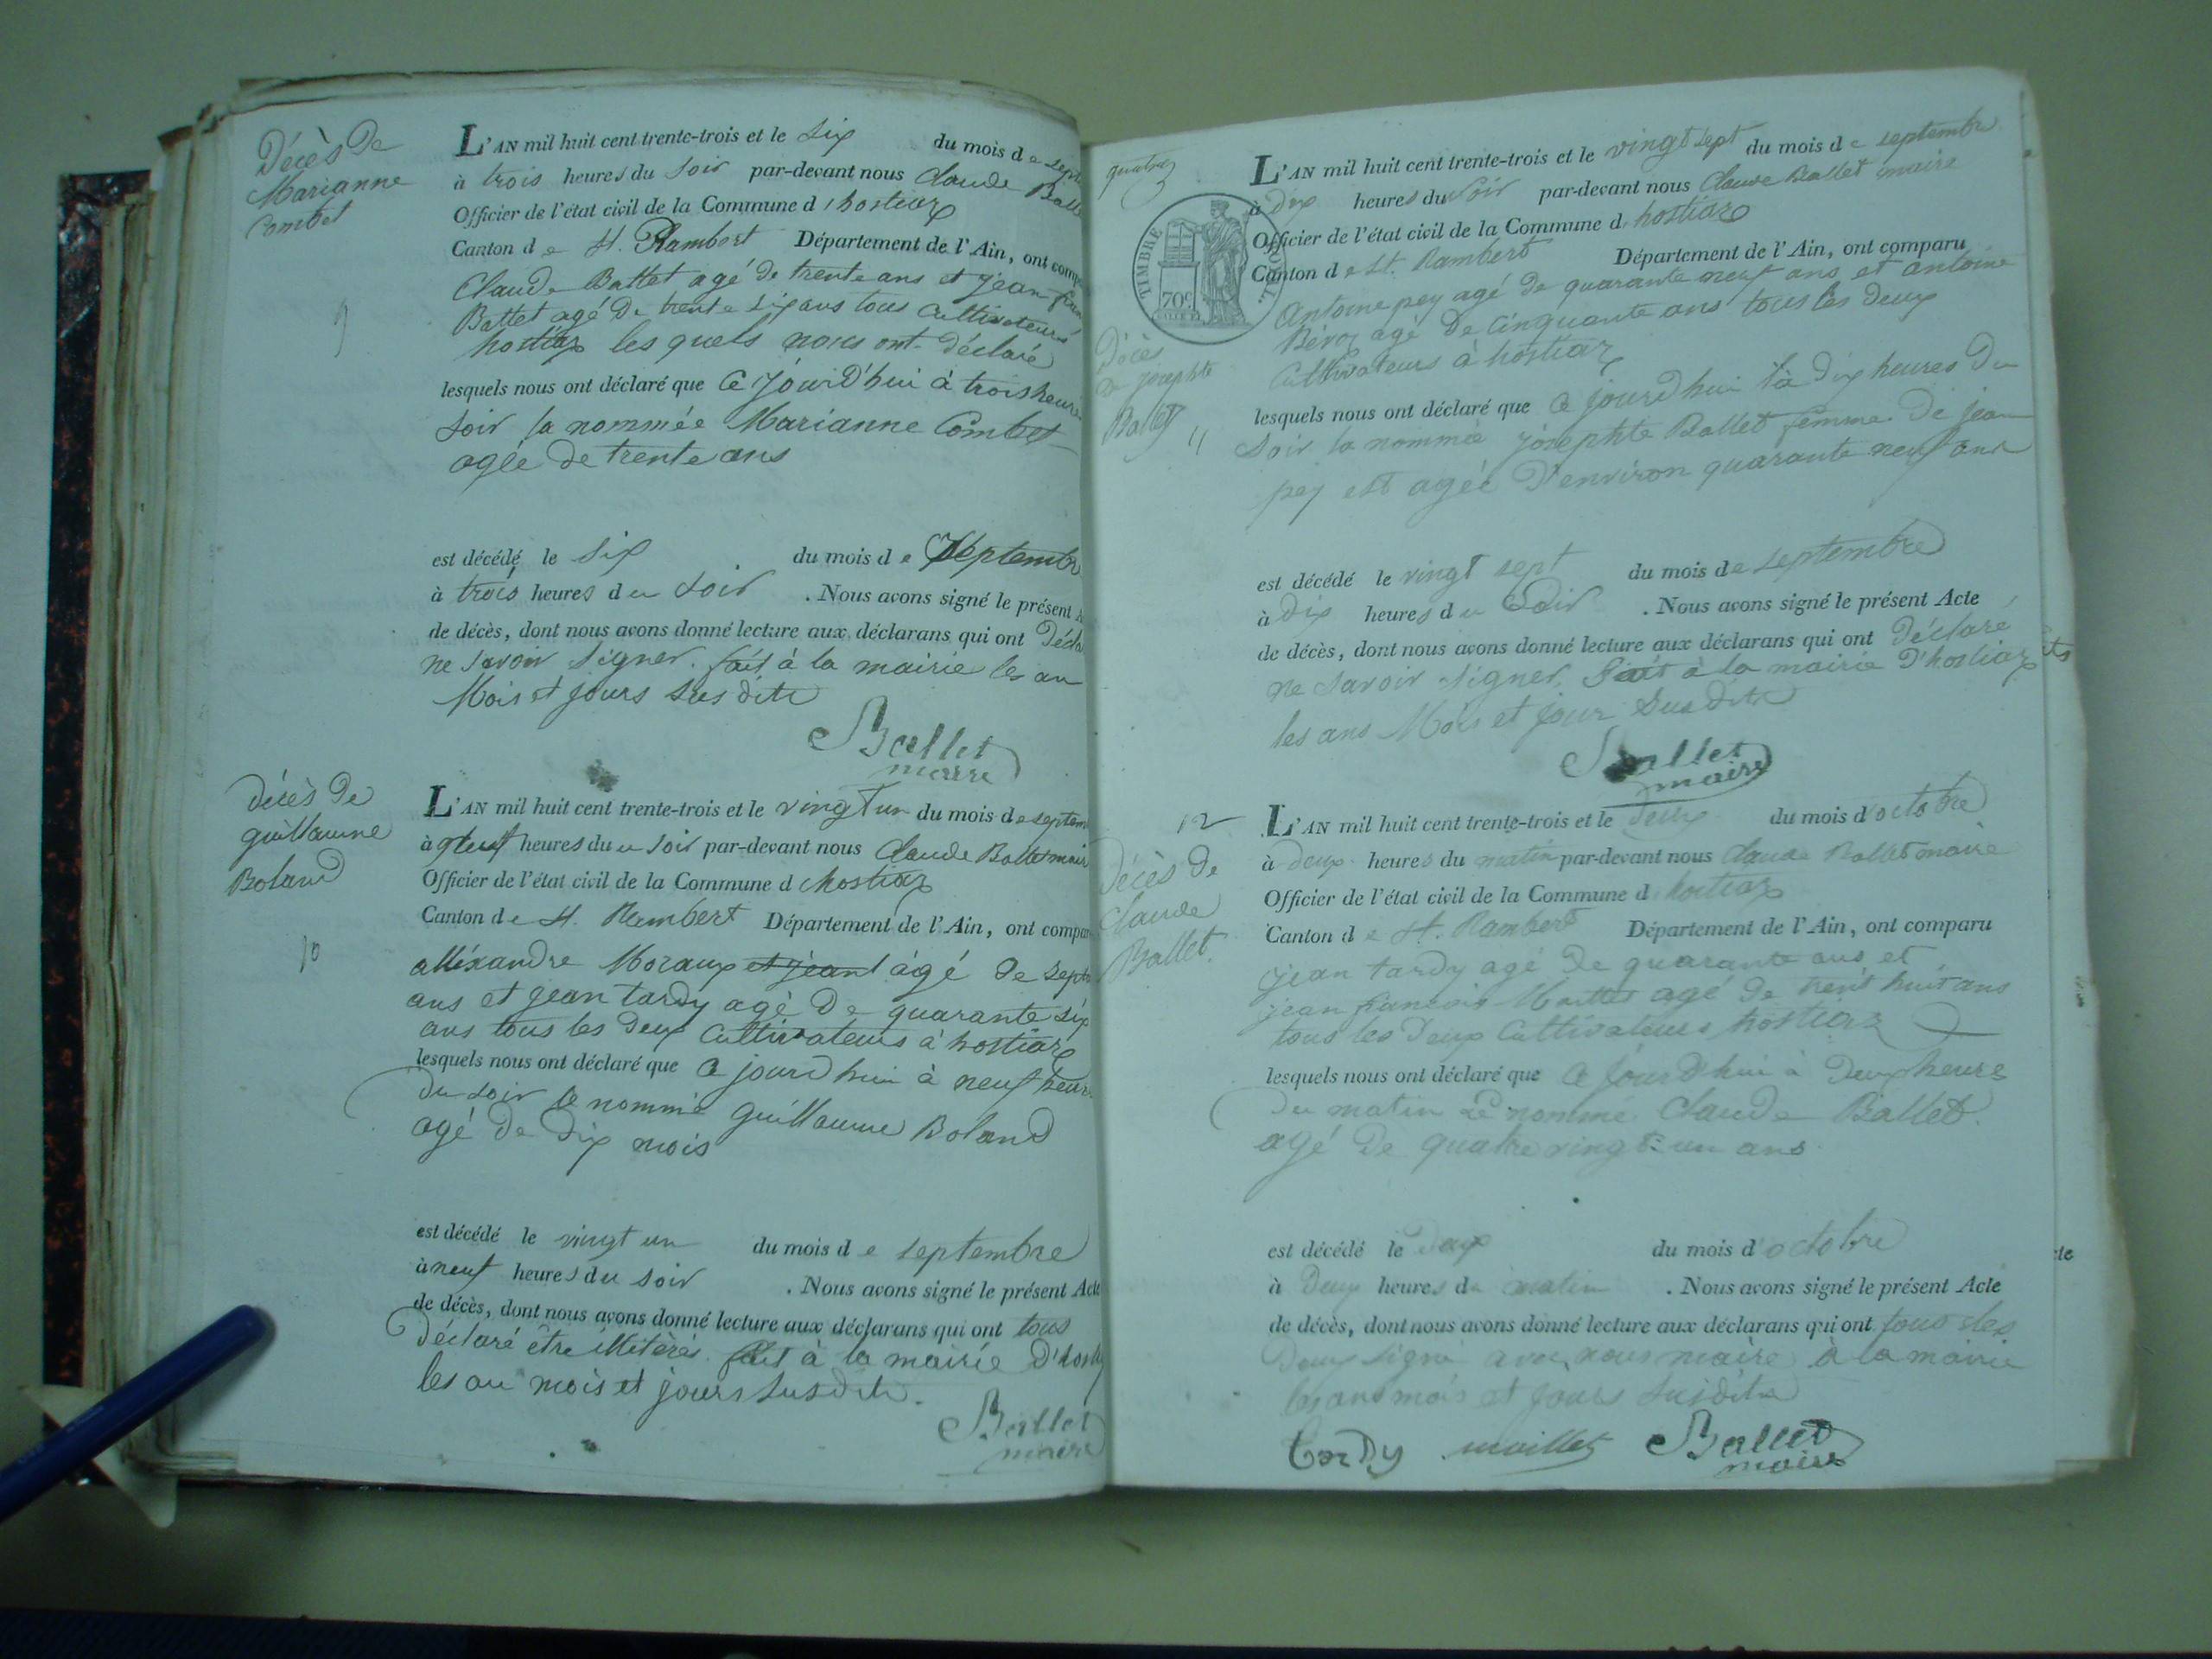 Décès de
Marianne
Combet
9
L'AN mil huit cent trente-trois et le six du mois de sept
à trois heures du soir par-devant nous Claude Balle
Officier de l'état civil de la Commune d'hostiaz
Canton de St. Rambert Département de l'Ain, ont comp
Claude Ballet agé de trente ans et jean
Ballet agé de trente six ans tous Cultivateurs
hostiaz les quels nous ont déclaré
lesquels nous ont déclaré que Ce jourd'hui à trois heure
soir la nommée Marianne Combet
agée de trente ans
est décédé le six du mois de Septembr
à trois heures du soir . Nous avons signé le présent A
de décès, dont nous avons donné lecture aux déclarans qui ont décla
ne savoir signer. fait à la mairie les an
Mois et jours susdits
Ballet
maire
décès de
guillaume
Boland
10
L'AN mil huit cent trente-trois et le vingt un du mois de septem
à neuf heures du soir par-devant nous Claude Ballet mair
Officier de l'état civil de la Commune d hostiaz
Canton de St. Rambert Département de l'Ain, ont compar
alléxandre Moraux et jean agé de sept
ans et jean tardy agé de quarante six
ans tous les deux Cultivateurs à hostiaz
lesquels nous ont déclaré que Ce jourd hui à neuf heur
du soir le nommé guillaume Boland
agé de dix mois
est décédé le vingt un du mois de septembre
à neuf heures du soir . Nous avons signé le présent Acte
de décès, dont nous avons donné lecture aux déclarans qui ont tous
déclaré être illitérés fait à la mairie D'hosti
les an mois et jours susdits.
Ballet
maire
quatre
TIMBRE ROYAL.
70c
Décès
de josephte
Ballet
11
L'AN mil huit cent trente-trois et le vingt sept du mois de septembre
à dix heures du soir par-devant nous Claude Ballet maire
Officier de l'état civil de la Commune d. hostiaz
Canton de St. Rambert Département de l'Ain, ont comparu
Antoine pey agé de quarante neuf ans et antoine
Béroz agé de Cinquante ans tous les deux
Cultivateurs à hostiaz
lesquels nous ont déclaré que Ce jourd hui à dix heures du
soir la nommée josephte Ballet femme de jean
pey est agée d'environ quarante neuf ans
est décédé le vingt sept du mois de septembre
à dix heures du soir . Nous avons signé le présent Acte
de décès, dont nous avons donné lecture aux déclarans qui ont déclaré
ne savoir signer. Fait à la mairie d'hostiaz
les ans Mois et jour susdits
Ballet
maire
12
décès de
Claude
Ballet.
L'AN mil huit cent trente-trois et le deux du mois d'octobre
à deux heures du matin par-devant nous Claude Ballet maire
Officier de l'état civil de la Commune d. hostiaz
Canton de St. Rambert Département de l'Ain, ont comparu
jean tardy agé de quarante ans et
jean francois Maillet agé de trent huit ans
tous les deux Cultivateurs hostiaz
lesquels nous ont déclaré que Ce jourd'hui à deux heures
du matin Le nommé Claude Ballet.
agé de quatre vingt un ans.
est décédé le deux du mois d'octobre
à deux heures du matin . Nous avons signé le présent Acte
de décès, dont nous avons donné lecture aux déclarans qui ont tous les
deux signé avec nous maire à la mairie
les ans mois et jours susdits
tardy maillet Ballet
maire